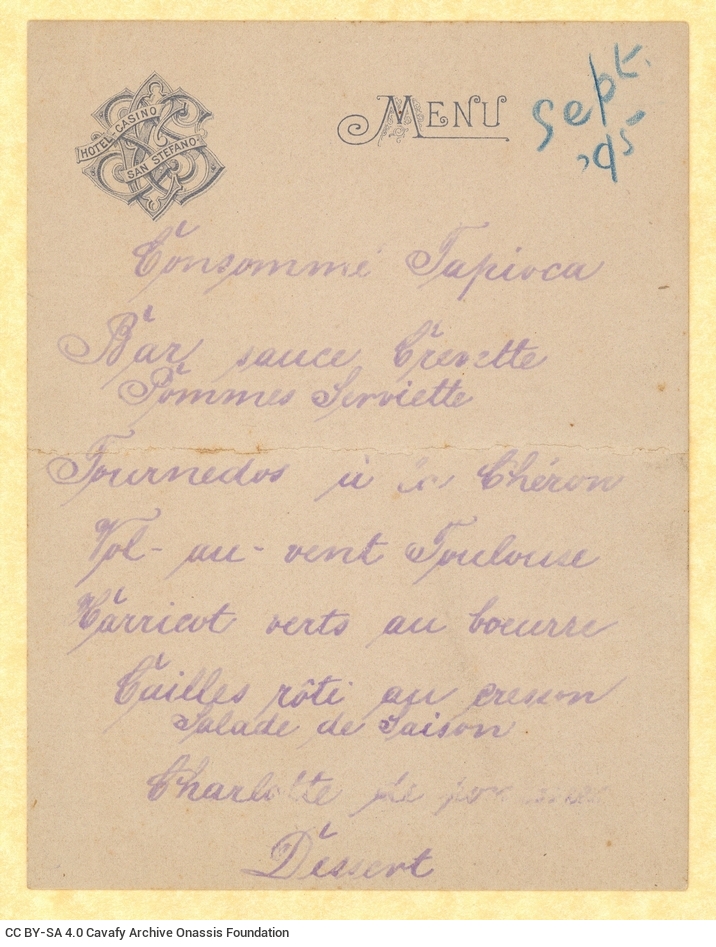 HOTEL-CASINO
SAN STEFANO
MENU
Sept.
'95
Consommé Tapioca
Bar sauce Crevette
Pommes Serviette
Tournedos à la Chéron
Vol-au-vent Toulouse
Harricot verts au boeurre
Cailles rôti au cresson
Salade de Saison
Charlotte de pommes
Dessert
CC BY-SA 4.0 Cavafy Archive Onassis Foundation